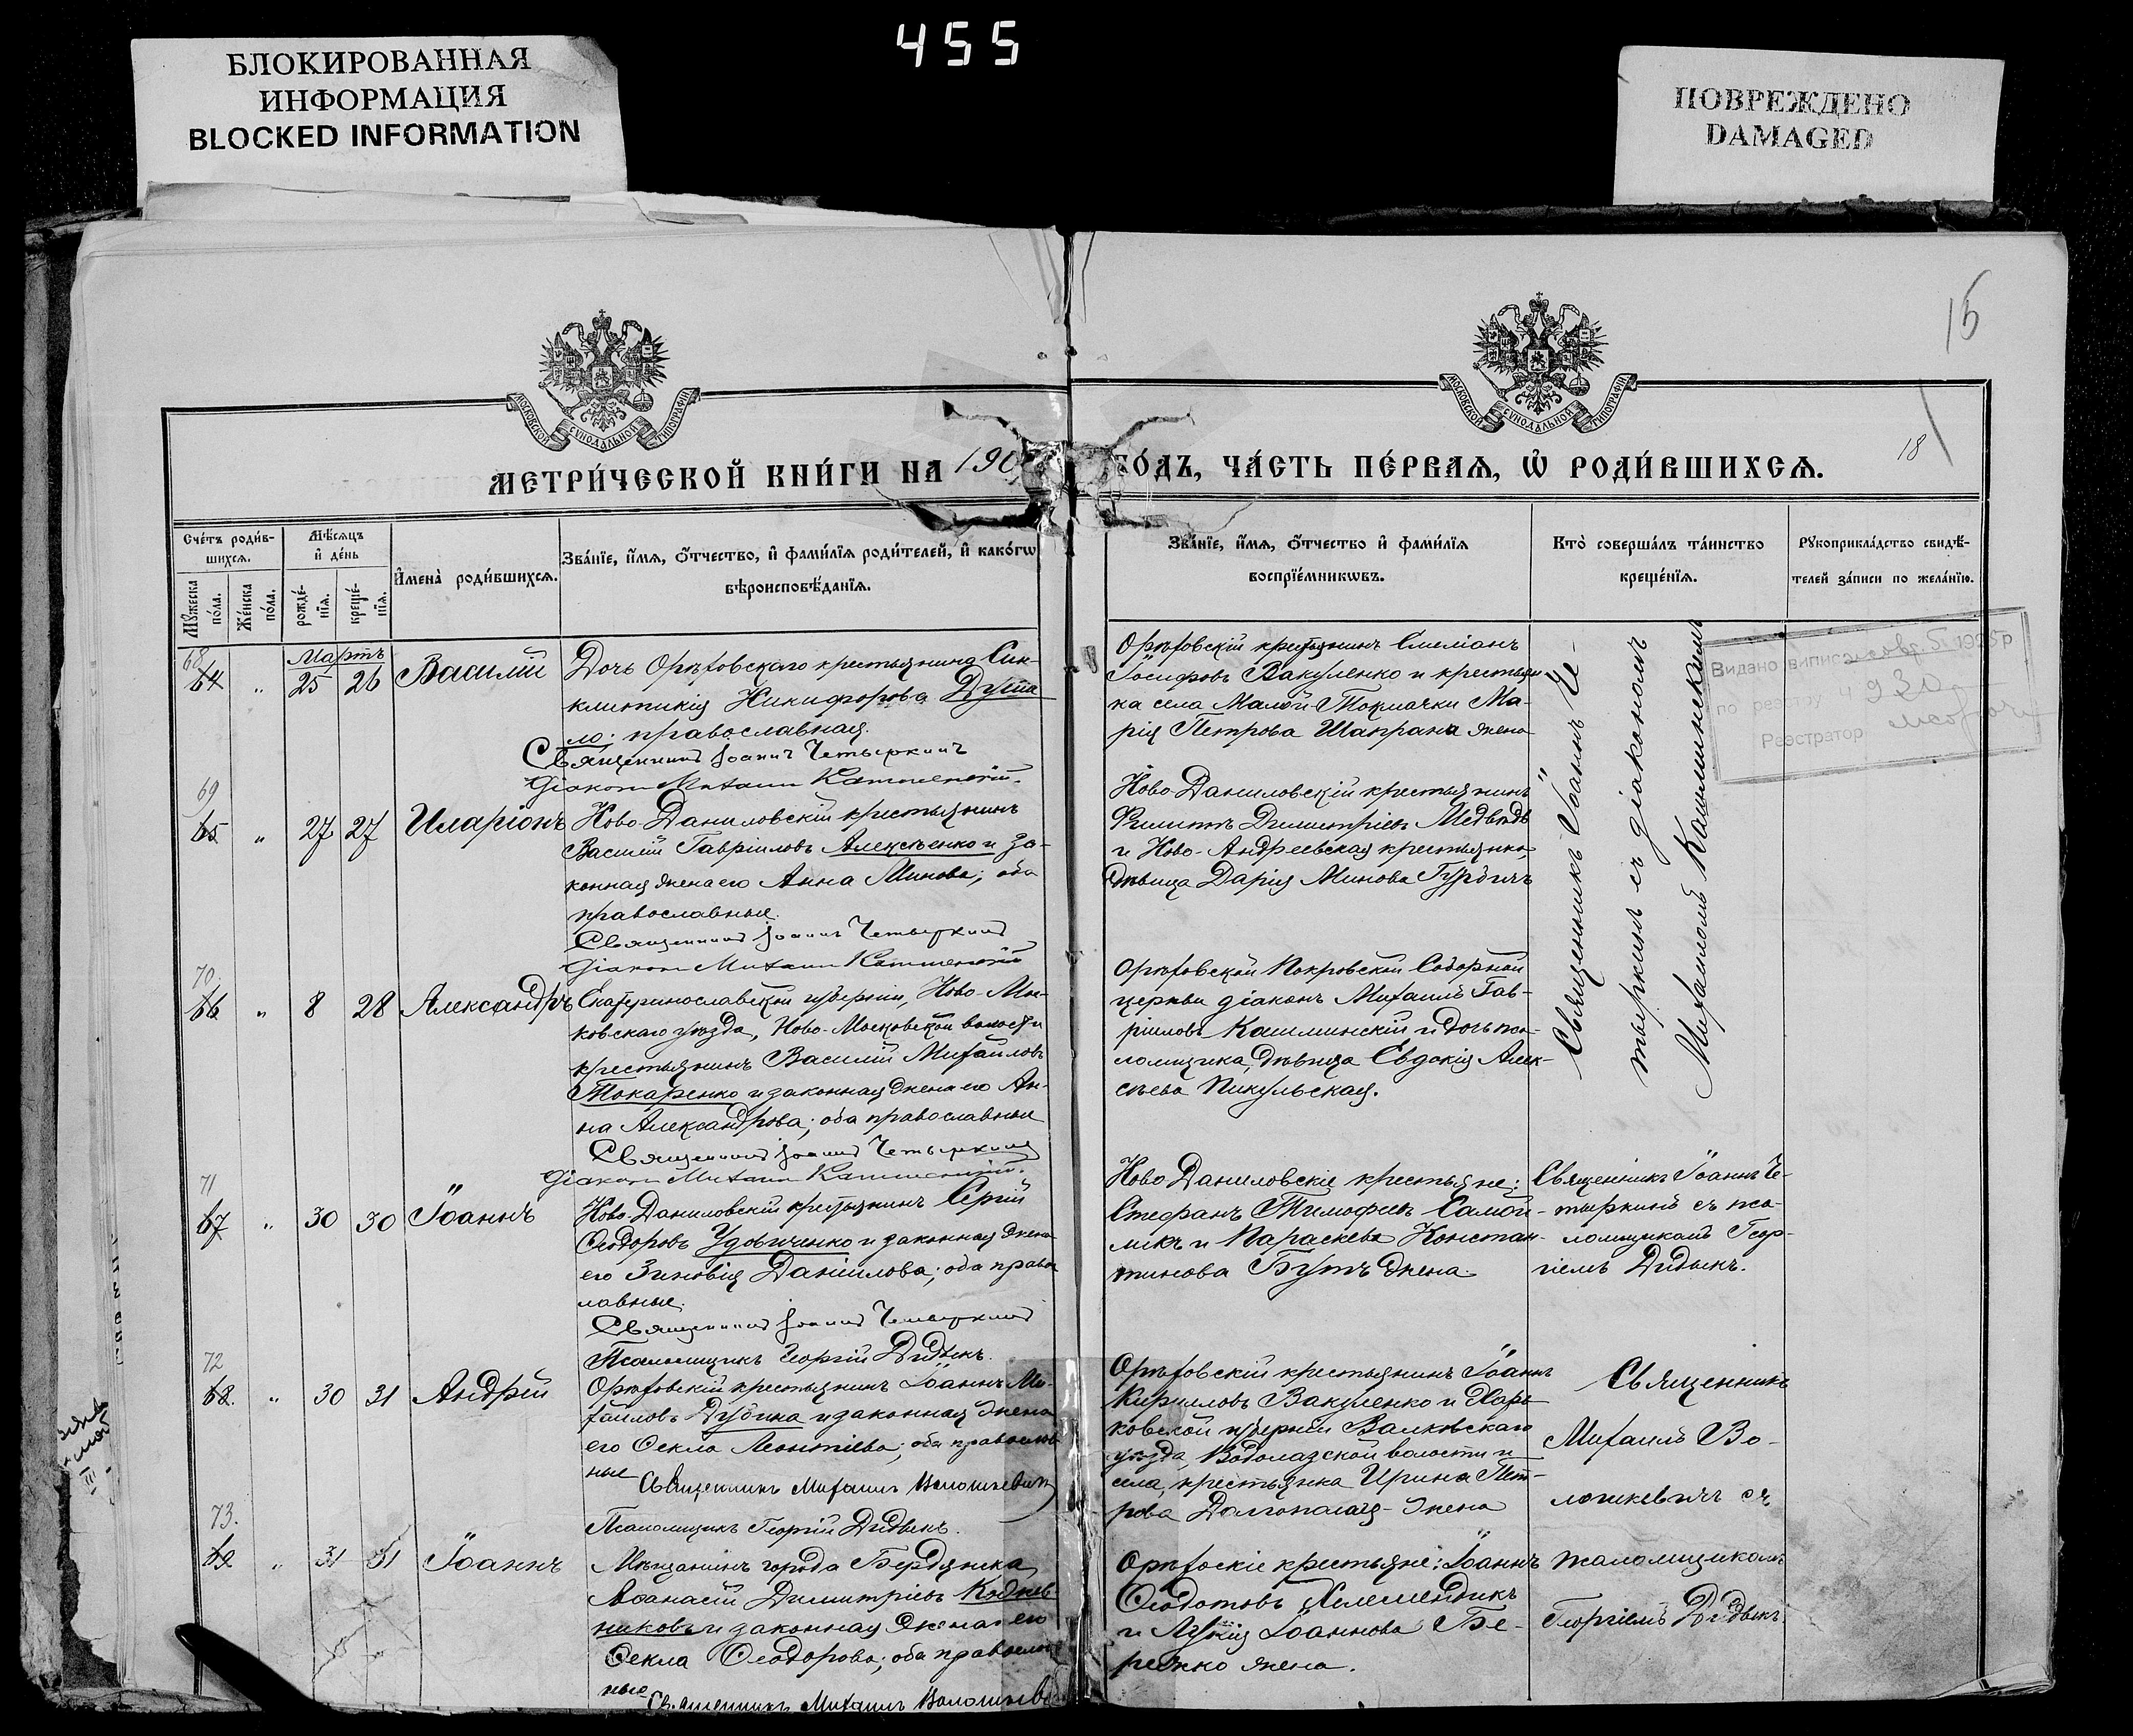 455
БЛОКИРОВАННАЯ
ИНФОРМАЦИЯ
BLOCKED INFORMATION
ПОВРЕЖДЕНО
DAMAGED
15
18
МОСКОВСКОЙ СѴНОДАЛЬНОЙ ТИПОГРАФІИ
МОСКОВСКОЙ СѴНОДАЛЬНОЙ ТИПОГРАФІИ
МЕТРИ́ЧЕСКОЙ КНИ́ГИ НА 190 ГО́ДЪ, ЧА́СТЬ ПЕ́РВАѦ, Ѡ РОДИ́ВШИХСѦ.
Сче́тъ роди́в-
шихсѧ.
Мѹжеска по́ла.
Же́нска по́ла.
Мѣ́сѧцъ
и де́нь
рожде́-
нїѧ.
креще́-
нїѧ.
Имена̀ роди́вшихсѧ.
Зва́нїе, и́мѧ, ѻ́тчество, и фами́лїѧ роди́телей, и како́гѡ
вѣроисповѣ́данїѧ.
Зва́нїе, и́мѧ, ѻ́тчество и фами́лїѧ
воспрїе́мникѡвъ.
Кто̀ соверша́лъ та́инство
креще́нїѧ.
Рѹкоприкла́дство свидѣ́-
телей за́писи по жела́нїю.
Мартъ
68
64 " 25 26 Василій
Дочь Орѣховскаго крестьянина Син-
клитикія Никифорова Дута
ло; православная.
Священникъ Іоаннъ Четыркинъ
Діаконъ Михаилъ Кашминскій.
Орѣховскій крестьянинъ Симеонъ
Іосифовъ Вакуленко и крестьян
ка села Малой-Токмачки Ма-
рія Петрова Шапрана жена
Священникъ Іоаннъ Че-
тыркинъ съ діакономъ
Михаиломъ Кашминскимъ
Видано виписа 1935 р
по реєстру ч 930
Реєстратор
69
65 " 27 27 Иларіонъ
Ново-Даниловскій крестьянинъ
Василій Гавріиловъ Алексѣенко и за-
конная жена его Анна Минова; оба
православные.
Священникъ Іоаннъ Четыркинъ
Діаконъ Михаилъ Кашминскій
Ново-Даниловскій крестьянинъ
Филиппъ Димитріевъ Медвѣдь
и Ново-Андреевская крестьянка,
дѣвица Дарія Минова Гурбичъ
70.
66 " 8 28 Александръ
Екатеринославской губерніи, Ново-Мос-
ковскаго уѣзда, Ново-Московской волости
крестьянинъ Василій Михайловъ
Токаренко и законная жена его Ан-
на Александрова; оба православные
Священникъ Іоаннъ Четыркинъ
Діаконъ Михаилъ Кашминскій.
Орѣховской Покровской Соборной
церкви діаконъ Михаилъ Гав-
ріиловъ Кашминскій и дочь пса-
ломщика, дѣвица Евдокія Алек-
сѣева Пикульская.
71
67 " 30 30 Іоаннъ
Ново-Даниловскій крестьянинъ Сергій
Ѳеодоровъ Удовиченко и законная жена
его Зиновія Даніилова; оба правос
лавные.
Священникъ Іоаннъ Четыркинъ
Псаломщикъ Георгій Дидыкъ.
Ново Даниловскіе крестьяне:
Стефанъ Тимофеевъ Самой-
ликъ и Параскева Констан-
тинова Бутъ жена.
Священникъ Іоаннъ Че-
тыркинъ съ пса-
ломщикомъ Геор-
гіемъ Дидыкъ.
72
68. " 30 31 Андрей
Орѣховскій крестьянинъ Іоаннъ Ми-
хаиловъ Дубина и законная жена
его Ѳекла Леонтіева; оба православ
ные
Священникъ Михаилъ Волошкевичъ
Псаломщикъ Георгій Дидыкъ.
Орѣховскій крестьянинъ Іоаннъ
Кирилловъ Вакуленко и Харь
ковской губерніи Валковскаго
уѣзда, Водолазской волости и
села, крестьянка Ирина Пет-
рова Долгополая - жена
Священникъ
Михаилъ Во-
лошкевичъ съ
73.
69 " 31 31 Іоаннъ
Мѣщанинъ города Бердянска
Аѳанасій Димитріевъ
никовъ и законная жена его
Ѳекла Ѳеодорова; оба православ
ные
Священникъ Михаилъ Волошкев
Орѣхоскіе крестьяне: Іоаннъ
Ѳеодотовъ Келемендикъ
и Лукія Іоаннова Бе-
режко жена.
псаломщикомъ
Георгіемъ Дидыкъ